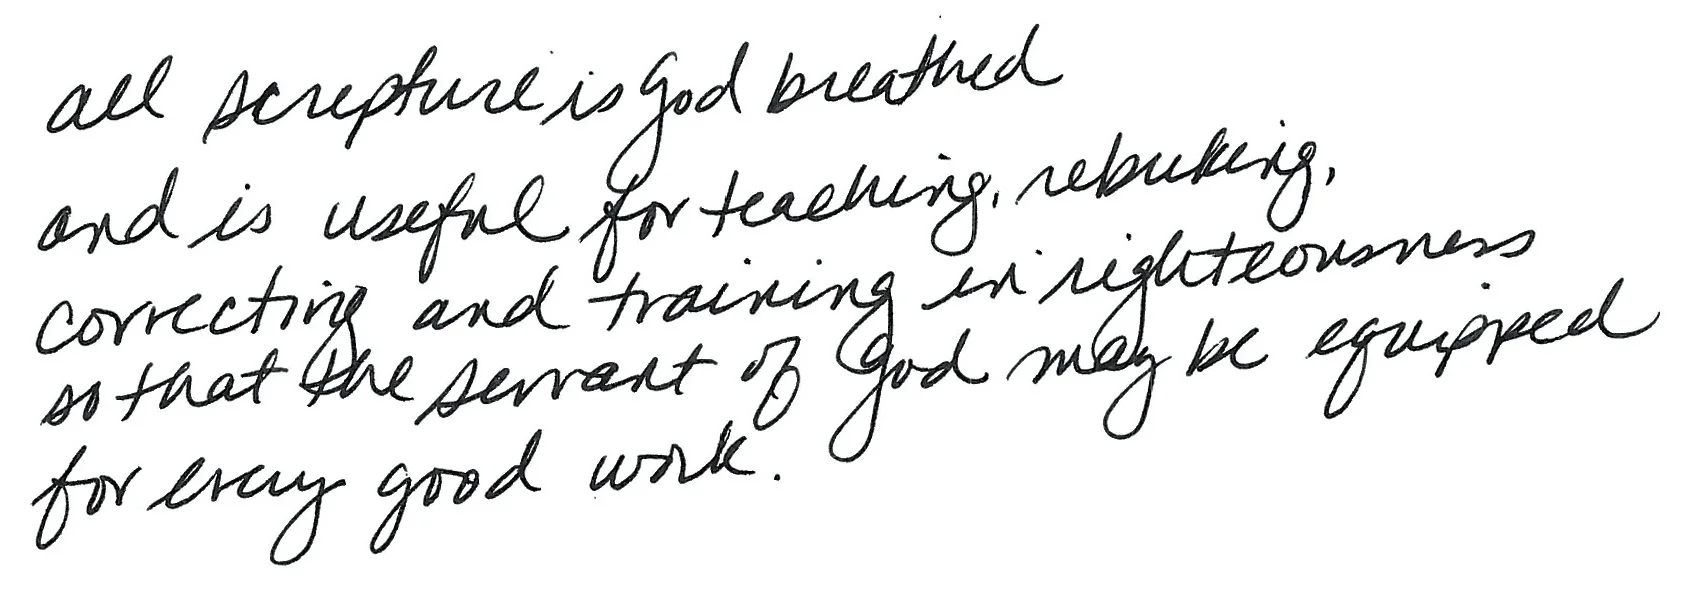 all scripture is God breathed
and is useful for teaching, rebuking,
correcting and training in righteousness
so that the servant of God may be equipped
for every good work.